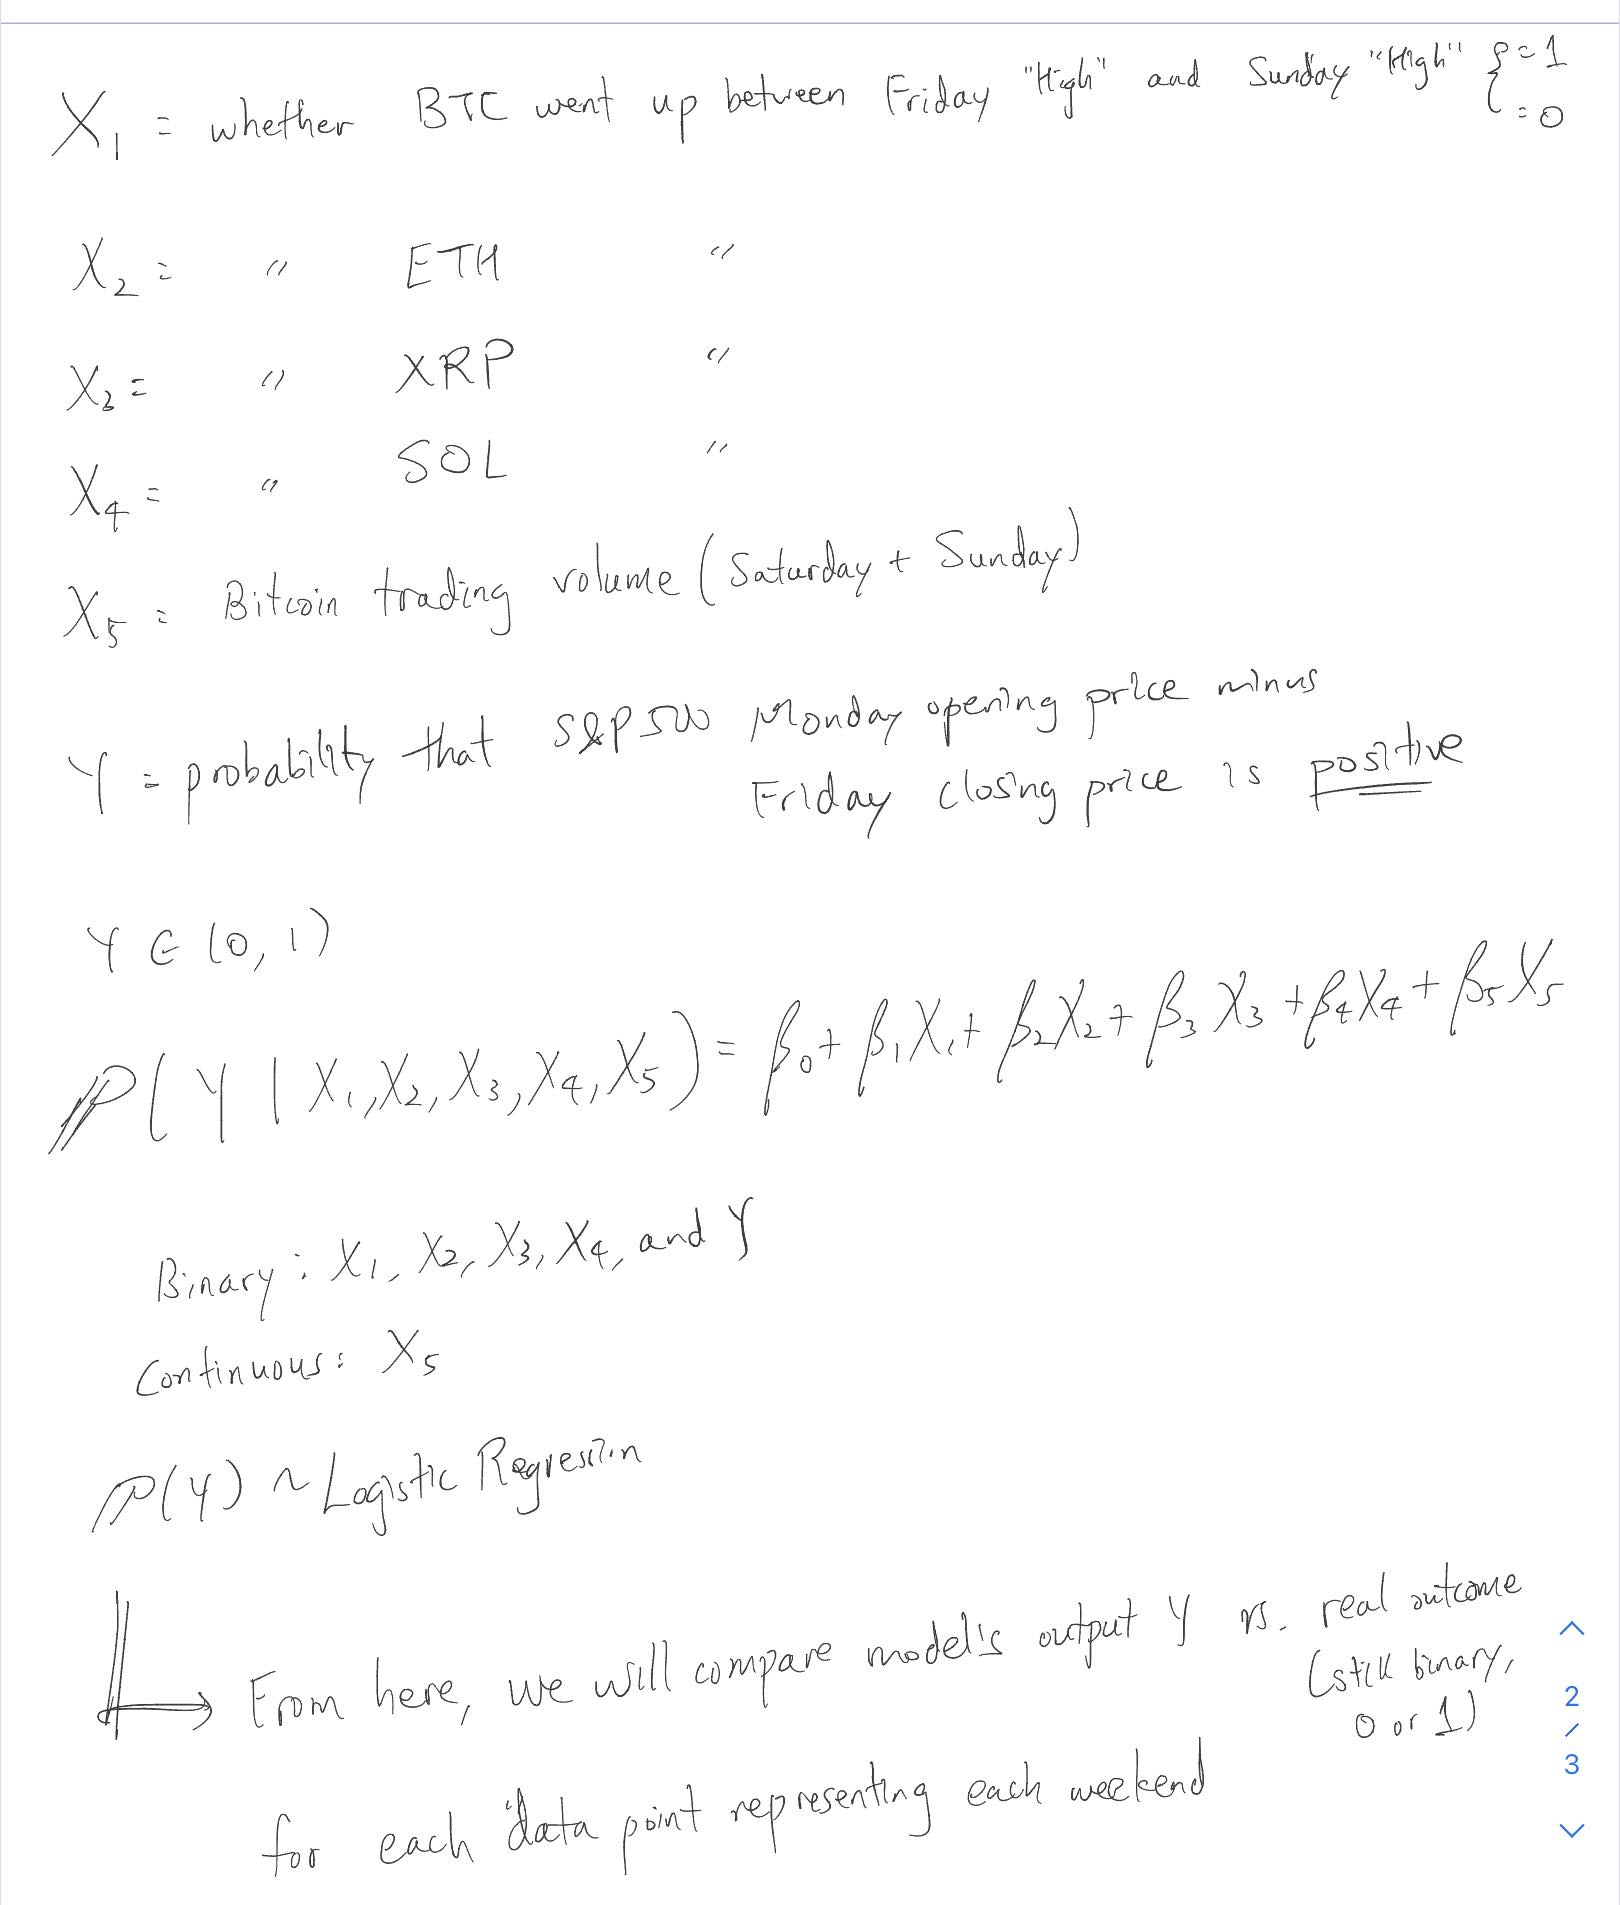 X₁ = whether BTC went up between Friday "High" and Sunday "High" { = 1
= 0
X₂ = " ETH "
X₃ = " XRP "
X₄ = " SOL "
X₅ = Bitcoin trading volume (Saturday + Sunday)
Y = probability that S&P500 Monday opening price minus
Friday closing price is positive
Y ∈ (0, 1)
ℙ(Y | X₁, X₂, X₃, X₄, X₅) = β₀ + β₁X₁ + β₂X₂ + β₃X₃ + β₄X₄ + β₅X₅
Binary: X₁, X₂, X₃, X₄, and Y
Continuous: X₅
ℙ(Y) ~ Logistic Regression
From here, we will compare model's output Y vs. real outcome
(still binary,
0 or 1)
for each data point representing each weekend
2
/
3